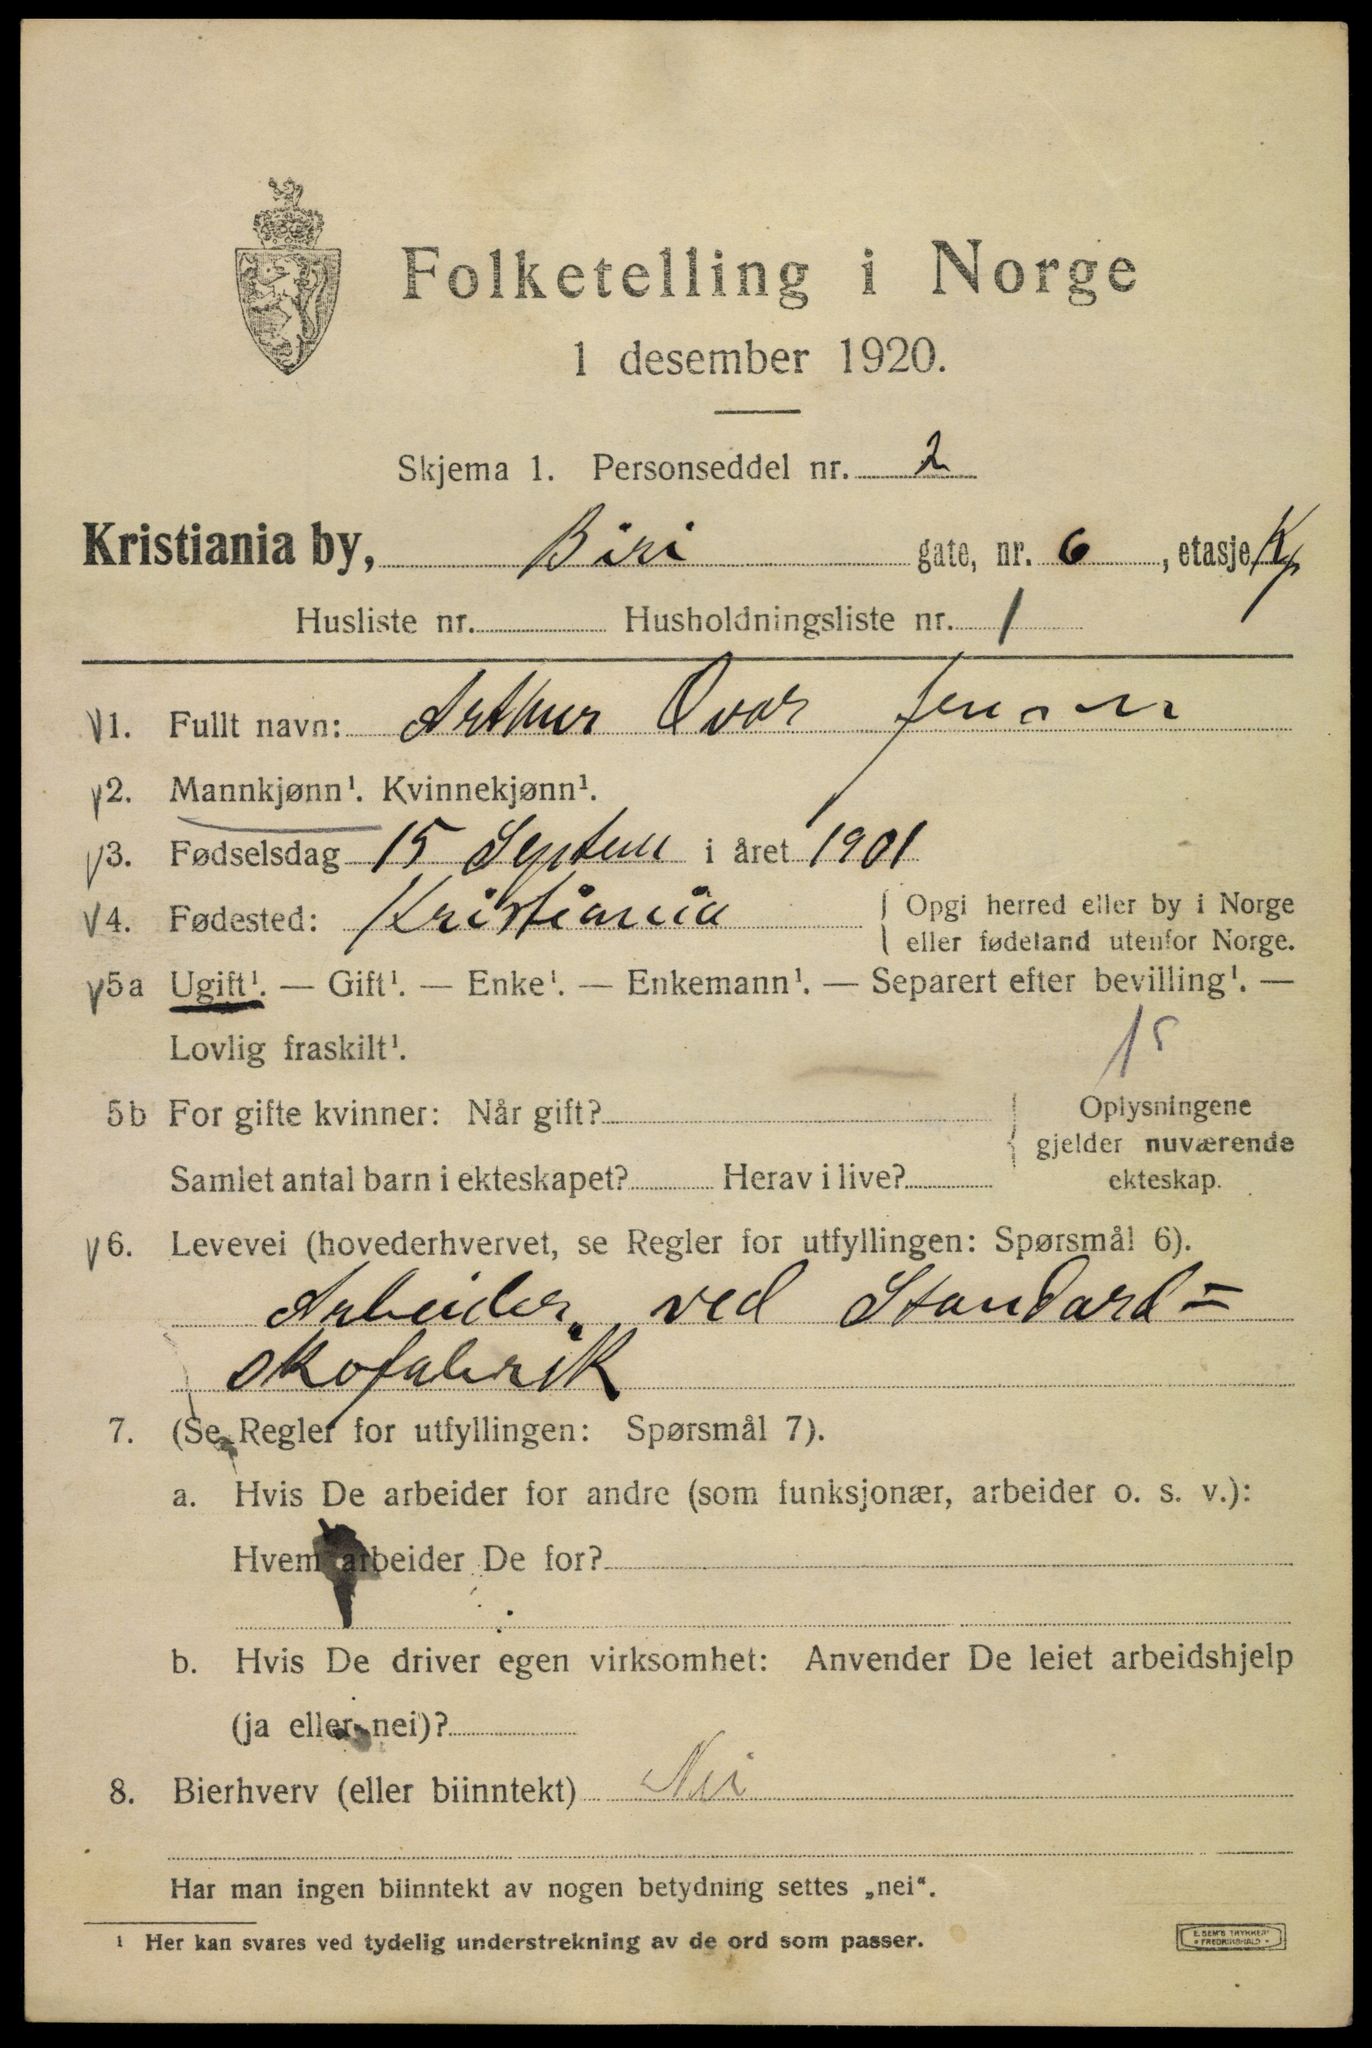 Folketelling i Norge
1 desember 1920.
Skjema 1. Personseddel nr. 2
Kristiania by, Biri gate, nr. 6, etasje Kj
Husliste nr. Husholdningsliste nr. 1
1. Fullt navn: Arthur Ovar Jensen
2. Mannkjønn¹. Kvinnekjønn¹.
3. Fødselsdag 15 Septem i året 1901
4. Fødested: Kristiania Opgi herred eller by i Norge
eller fødeland utenfor Norge.
5a Ugift¹. — Gift¹. — Enke¹. — Enkemann¹. — Separert efter bevilling¹. —
Lovlig fraskilt¹. 15
5b For gifte kvinner: Når gift? Oplysningene
gjelder nuværende
Samlet antal barn i ekteskapet? Herav i live? ekteskap.
6. Levevei (hovederhvervet, se Regler for utfyllingen: Spørsmål 6).
Arbeider ved Standard=
skofabrik
7. (Se Regler for utfyllingen: Spørsmål 7).
a. Hvis De arbeider for andre (som funksjonær, arbeider o. s. v.):
Hvem arbeider De for?
b. Hvis De driver egen virksomhet: Anvender De leiet arbeidshjelp
(ja eller nei)?
8. Bierhverv (eller biinntekt) Nei
Har man ingen biinntekt av nogen betydning settes „nei“.
¹ Her kan svares ved tydelig understrekning av de ord som passer.
E. SEM'S TRYKKERI
• FREDRIKSHALD •